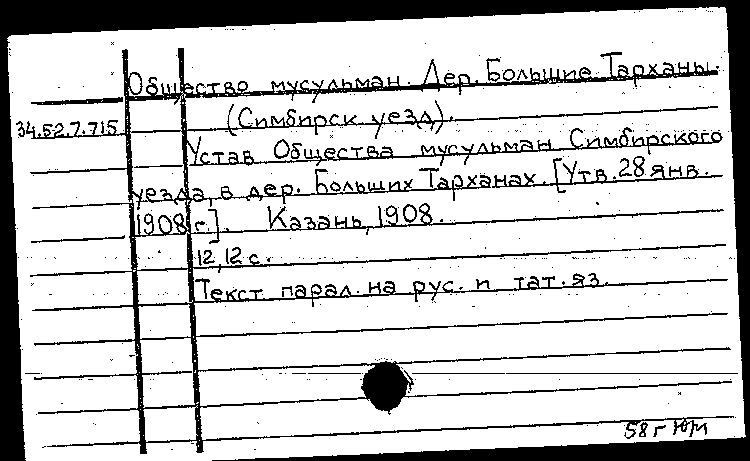 Общество мусульман. Дер. Большие Тарханы.
(Симбирск уезд).
34.52.7.715
Устав Общества мусульман Симбирского
уезда, в дер. Больших Тарханах. [Утв. 28 янв.
1908 г.]. Казань, 1908.
12, 12 с.
Текст парал. на рус. и тат. яз.
58 г